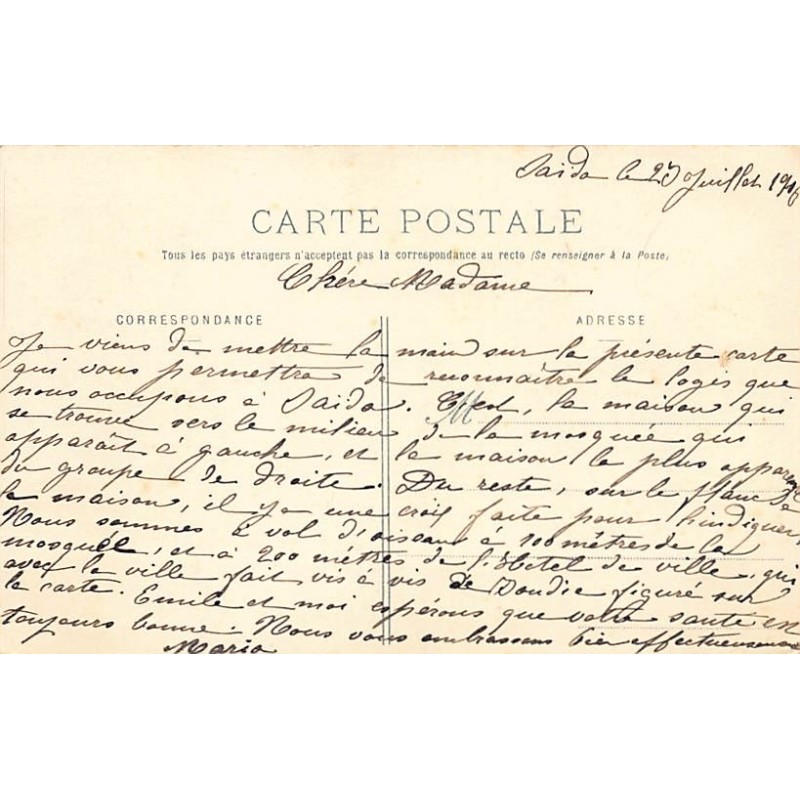 Saïda le 25 Juillet 1906
CARTE POSTALE
Tous les pays étrangers n'acceptent pas la correspondance au recto (Se renseigner à la Poste)
Chére Madame
CORRESPONDANCE
ADRESSE
Je viens de mettre la main sur la présente carte
qui vous permettra de reconnaître le loges que
nous occupons à Saïda. C'est, la maison qui
se trouve vers le milieu de la mosquée qui
apparaît à gauche, et la maison la plus apparente
du groupe de droite. Du reste, sur le flanc de
la maison, il y a une croix faite pour l'indiquer.
Nous sommes à vol d'oiseau à 100 métres de la
mosquée, et à 200 métres de l'Hotel de ville, qui
avec la ville fait vis à vis de figuré sur
la carte. Emile et moi espérons que votre santé est
toujours bonne. Nous vous embrassons bien affectueusement
Maria